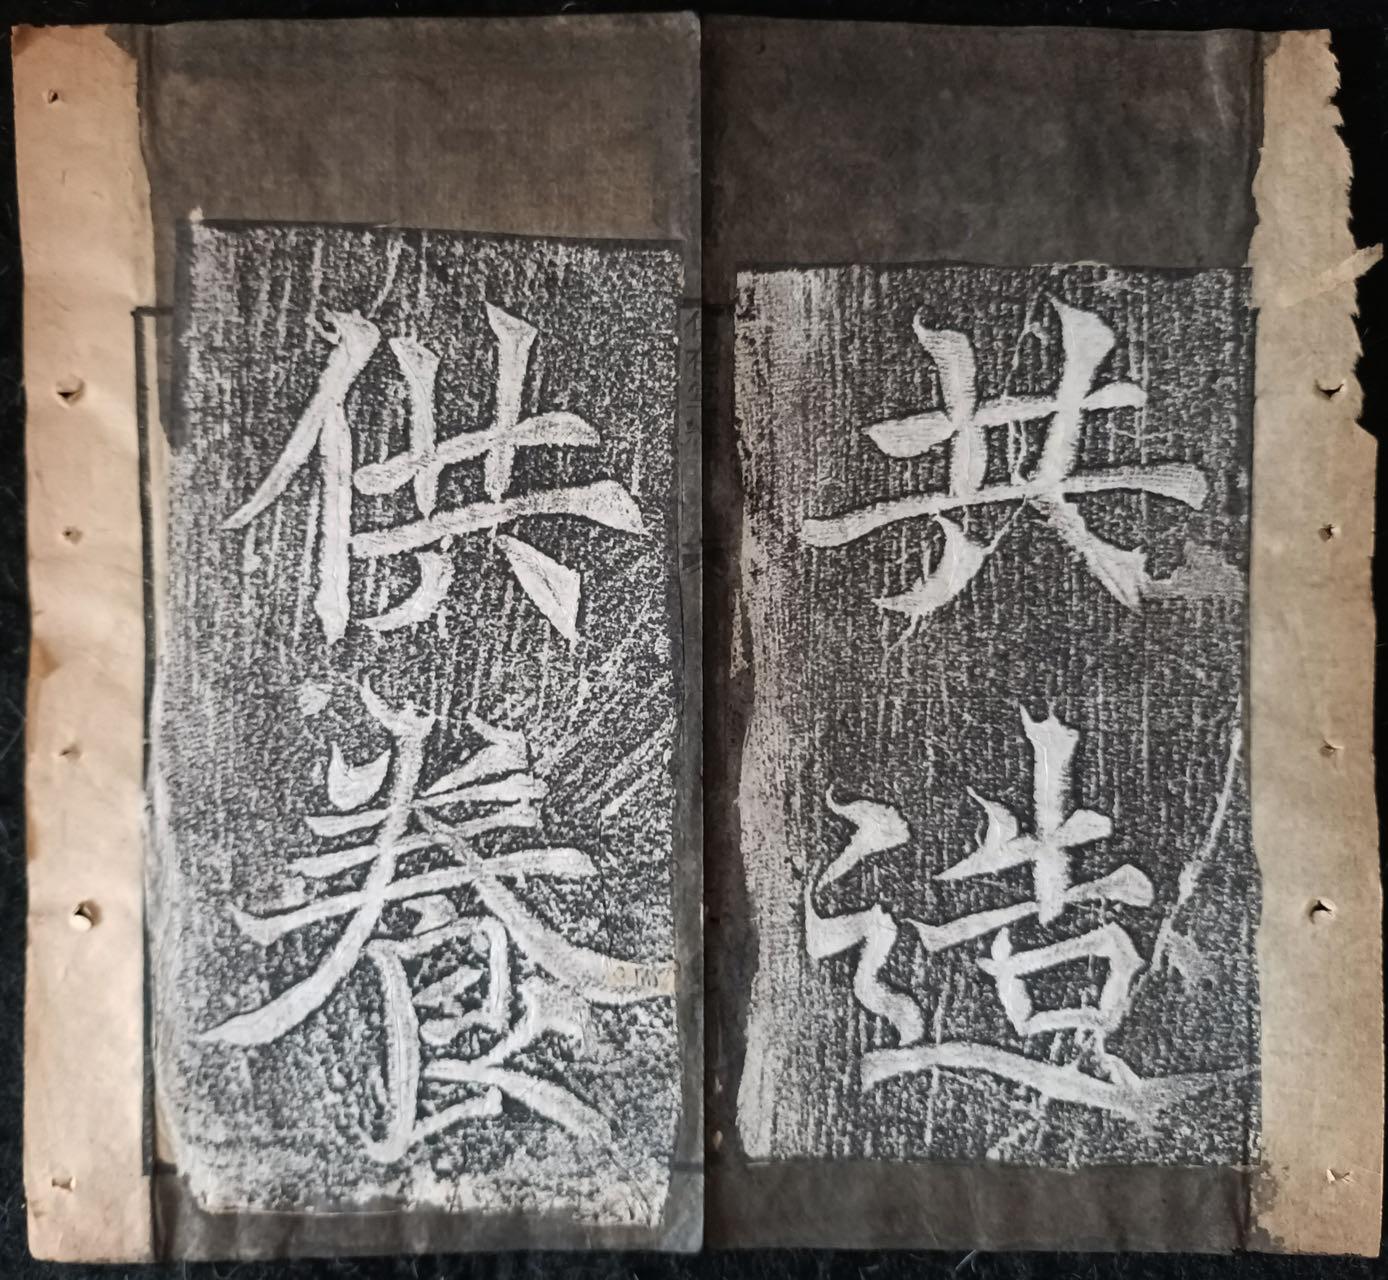 共造
供養